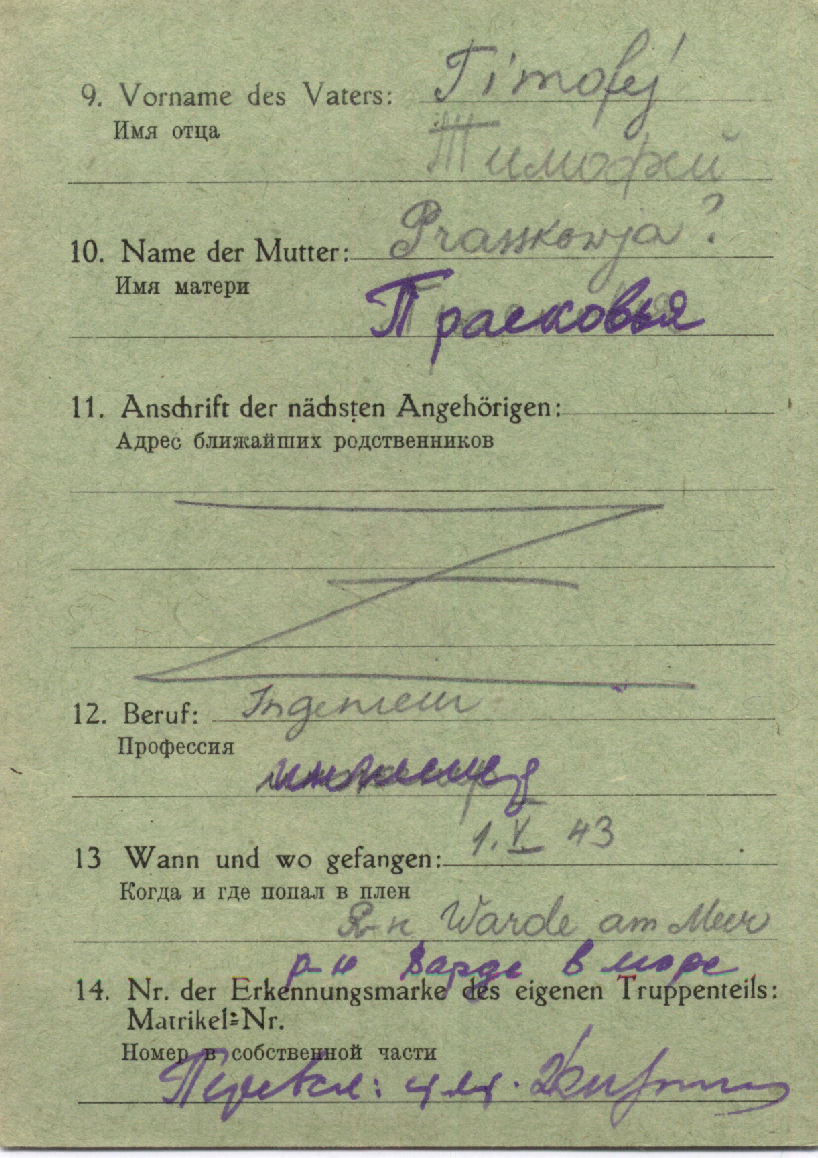 9. Vorname des Vaters: Timofej
Имя отца
Тимофей
10. Name der Mutter: Prasskowja?
Имя матери
Прасковья
11. Anschrift der nächsten Angehörigen:
Адрес ближайших родственников
12. Beruf: Ingenieur
Профессия
инженер
13 Wann und wo gefangen: 1. V 43
Когда и где попал в плен
R-n Warde am Meer
р-н Варде в море
14. Nr. der Erkennungsmarke des eigenen Truppenteils:
Matrikel-Nr.
Номер в собственной части
Перевел: